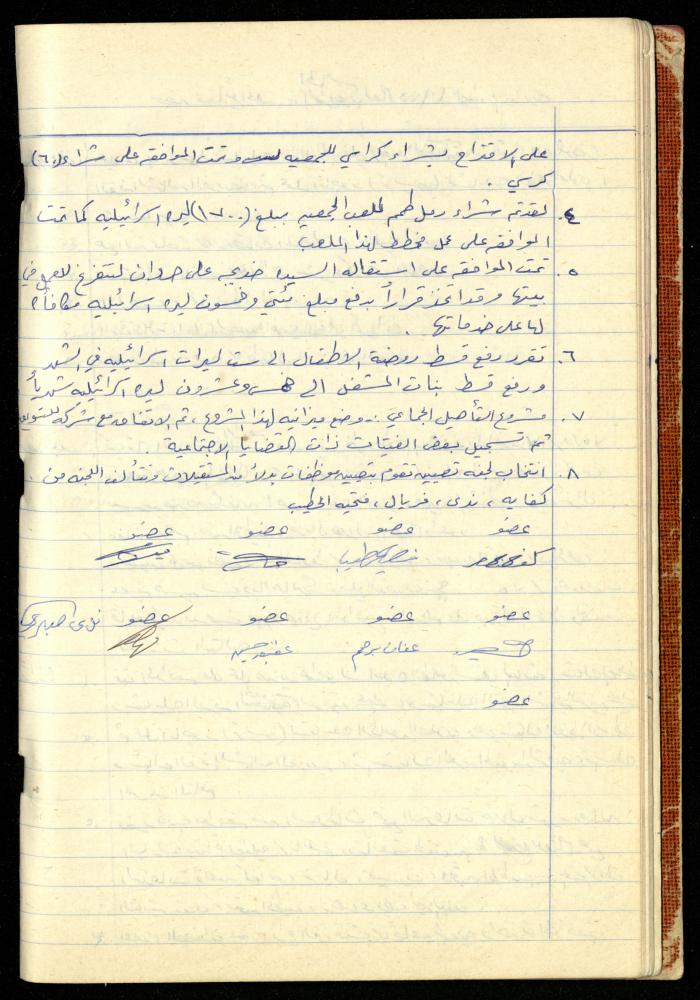 على الاقتراح بشراء كراسي للجمعيه وتمت الموافقه على شراء (٦٠)
كرسي .
٤. لقد تم شراء رمل طمم لملعب الجمعيه بمبلغ (١٧٠٠) ليره اسرائيليه كما تمت
الموافقه على عمل مخطط لهذا الملعب
٥. تمت الموافقه على استقاله السيده خديجه على حمدان لتتفرغ للعمل في
بيتها وقد اتخذ قراراً بدفع مبلغ مئتي وخمسون ليره اسرائيليه مكافأة
لها على خدماتها .
٦. تقرر رفع قسط روضة الاطفال الى ست ليرات اسرائيليه في الشهر
ورفع قسط بنات المشغل الى خمس وعشرون ليره اسرائيليه شهرياً
٧. مشروع التأهيل الجماعي :- وضع ميزانيه لهذا المشروع ، تم الاتفاق مع شركة
تم تسجيل بعض الفتيات ذات القضايا الاجتماعية .
٨. انتخاب لجنه تعيين تقوم بتعيين موظفات بدلاً من المستقيلات وتتألف اللجنه من
كفايه ، ندى ، فريال ، فتحيه الخطيب
عضو عضو عضو عضو
عضو عضو عضو عضو ندى
عفاف
عضو